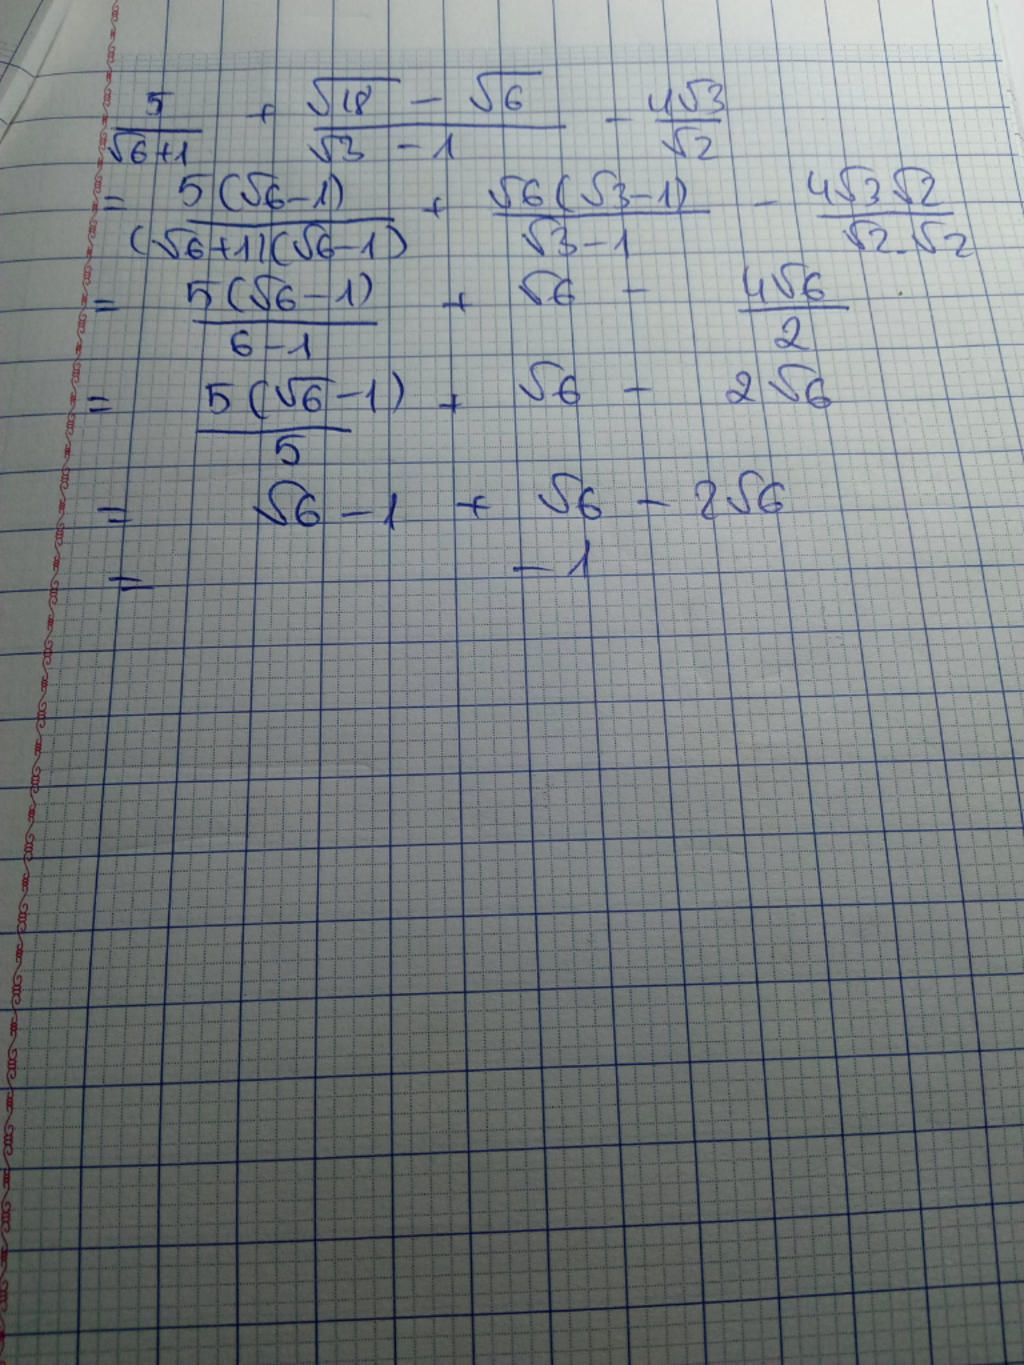 5/(√6+1) + (√18 - √6)/(√3 - 1) - 4√3/√2
= 5(√6-1)/((√6+1)(√6-1)) + √6(√3-1)/(√3-1) - 4√3√2/(√2.√2)
= 5(√6-1)/(6-1) + √6 - 4√6/2
= 5(√6-1)/5 + √6 - 2√6
= √6-1 + √6 - 2√6
= -1